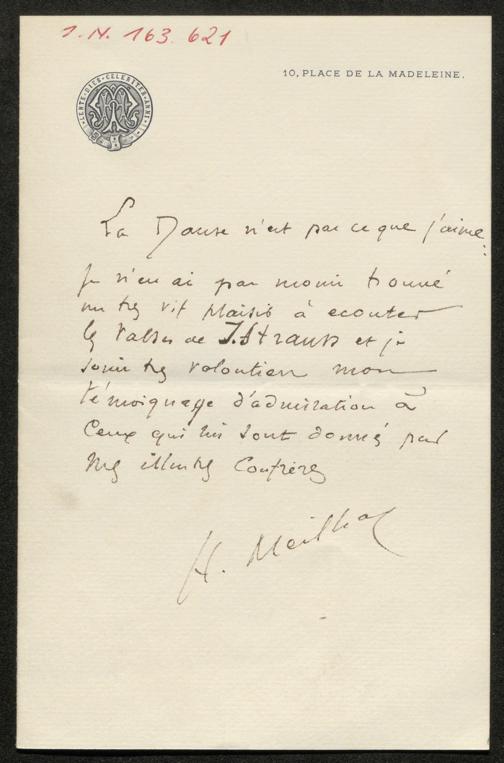 I.N. 163.621
10, PLACE DE LA MADELEINE.
La Danse n'est pas ce que j'aime.
Je n'en ai pas moins trouvé
un très vif plaisir à ecouter
les valses de J. Strauss et je
joins très volontiers mon
témoignage d'admiration à
ceux qui lui sont donnés par
mes illustres Confrères
H. Meilhac